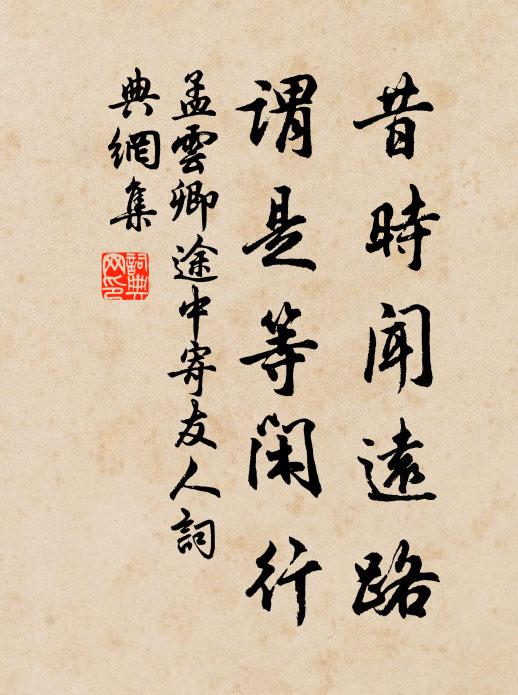 昔時聞遠路
謂是等閑行
孟雲卿途中寄友人詞
典網集
詞典网印